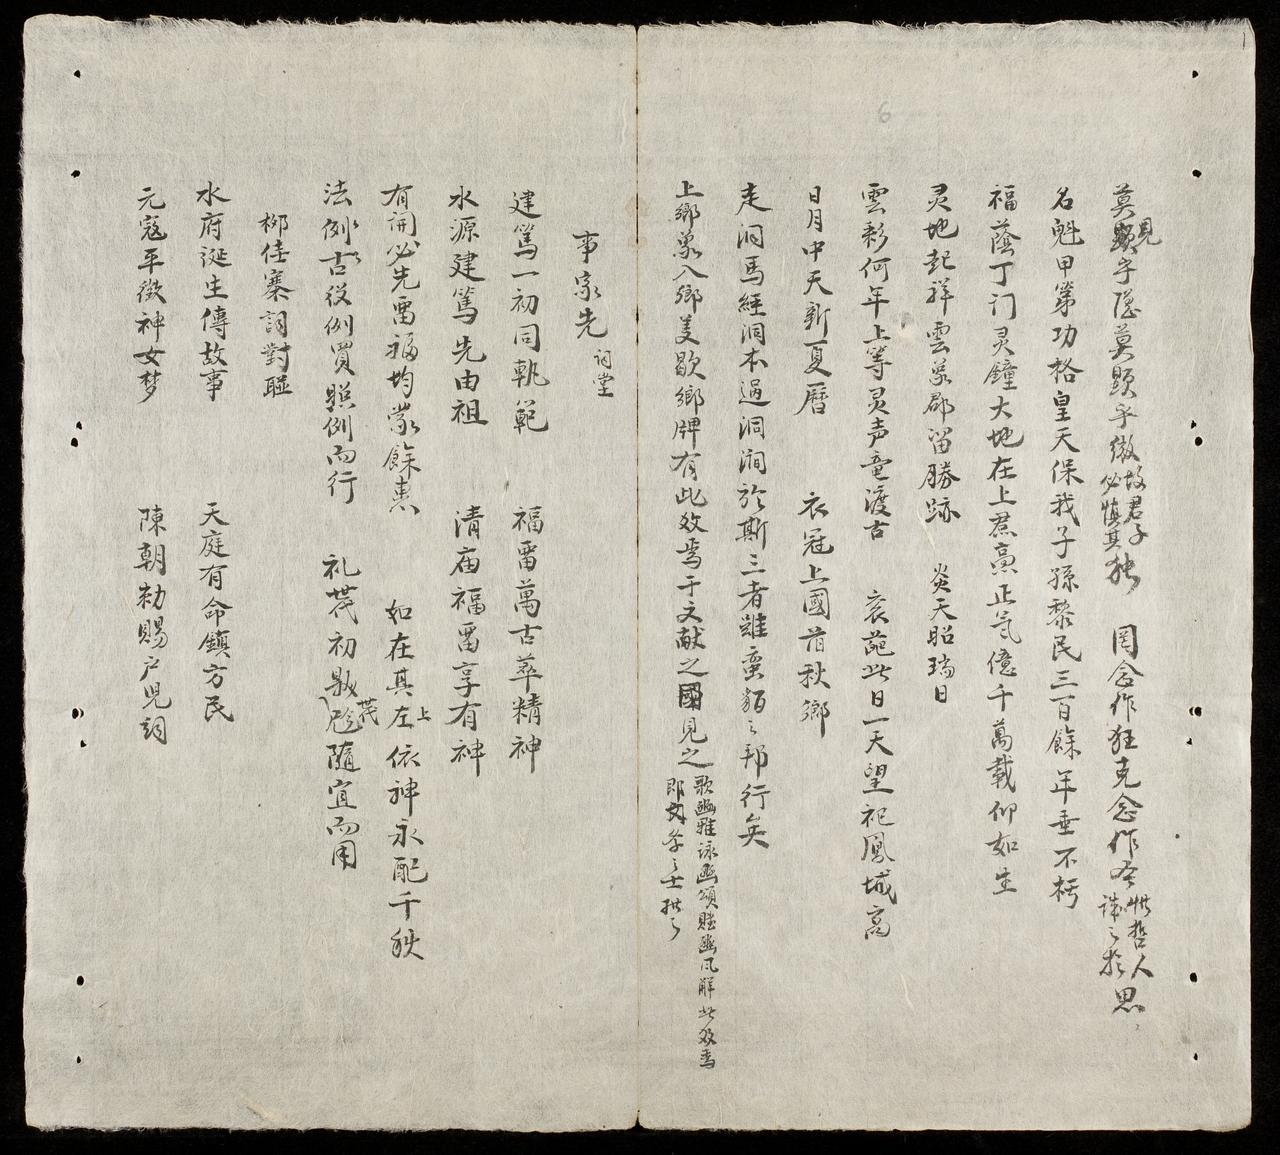 莫見乎隐莫顕乎微故君子必慎其独　罔念作狂克念作圣惟哲人誠之於思
名魁甲第功格皇天保我子孫黎民三百餘年垂不朽
福蔭丁门灵鐘大地在上焄蒿正气億千萬載仰如生
灵地起祥雲象郡留勝跡　炎天昭瑞日
雲彩何年上等灵声竜渡古　衮葩此日一天望祀鳳城高
日月中天新夏曆　衣冠上國旧秋鄉
走洞馬經洞本過洞洞於斯三者雖蛮貊之邦行矣
上鄉象入鄉美歇鄉牌有此效焉于文献之國見之歌豳雅詠豳頌賦豳风解此效焉
事家先　祠堂
建篤一初同軌範　福畱萬古萃精神
水源建篤先由祖　清庙福畱享有神
有開必先畱福均蒙餘惠　如在其左上依神永配千秩
法例古役例買照例而行　礼幾初隨宜而用
梛佳寨詞對聯
水府誕生傳故事　天庭有命鎮方民
元寇平徵神女梦　陳朝勅賜户児詞
6